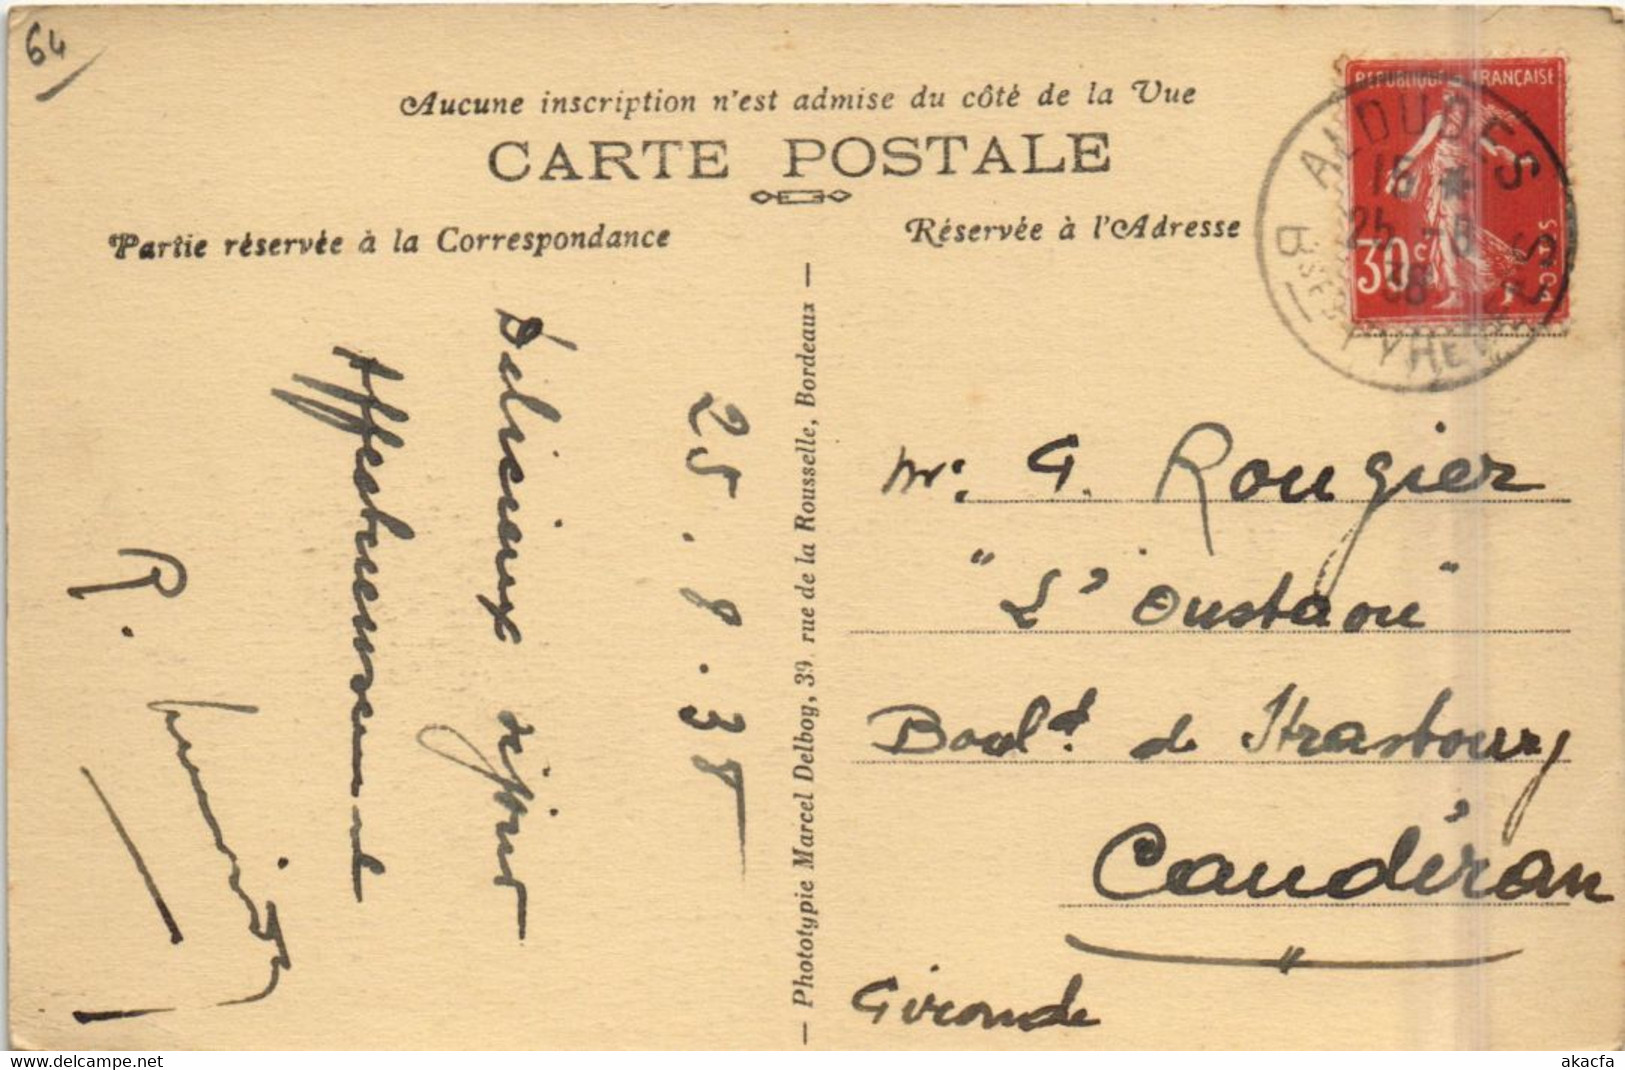 64
Aucune inscription n'est admise du côté de la Vue
CARTE POSTALE
Partie réservée à la Correspondance
Réservée à l'Adresse
REPUBLIQUE FRANÇAISE
30c
POSTES
ALDUDES
16 *
24 - 8
38
25.8.38
Délicieux séjour
Affectueusement
R.
— Phototypie Marcel Delboy, 39, rue de la Rousselle, Bordeaux —
Mr. G. Rougier
"L'Oustaou"
Boul.d de Strasbourg
Caudéran
Gironde
www.delcampe.net
akacfa